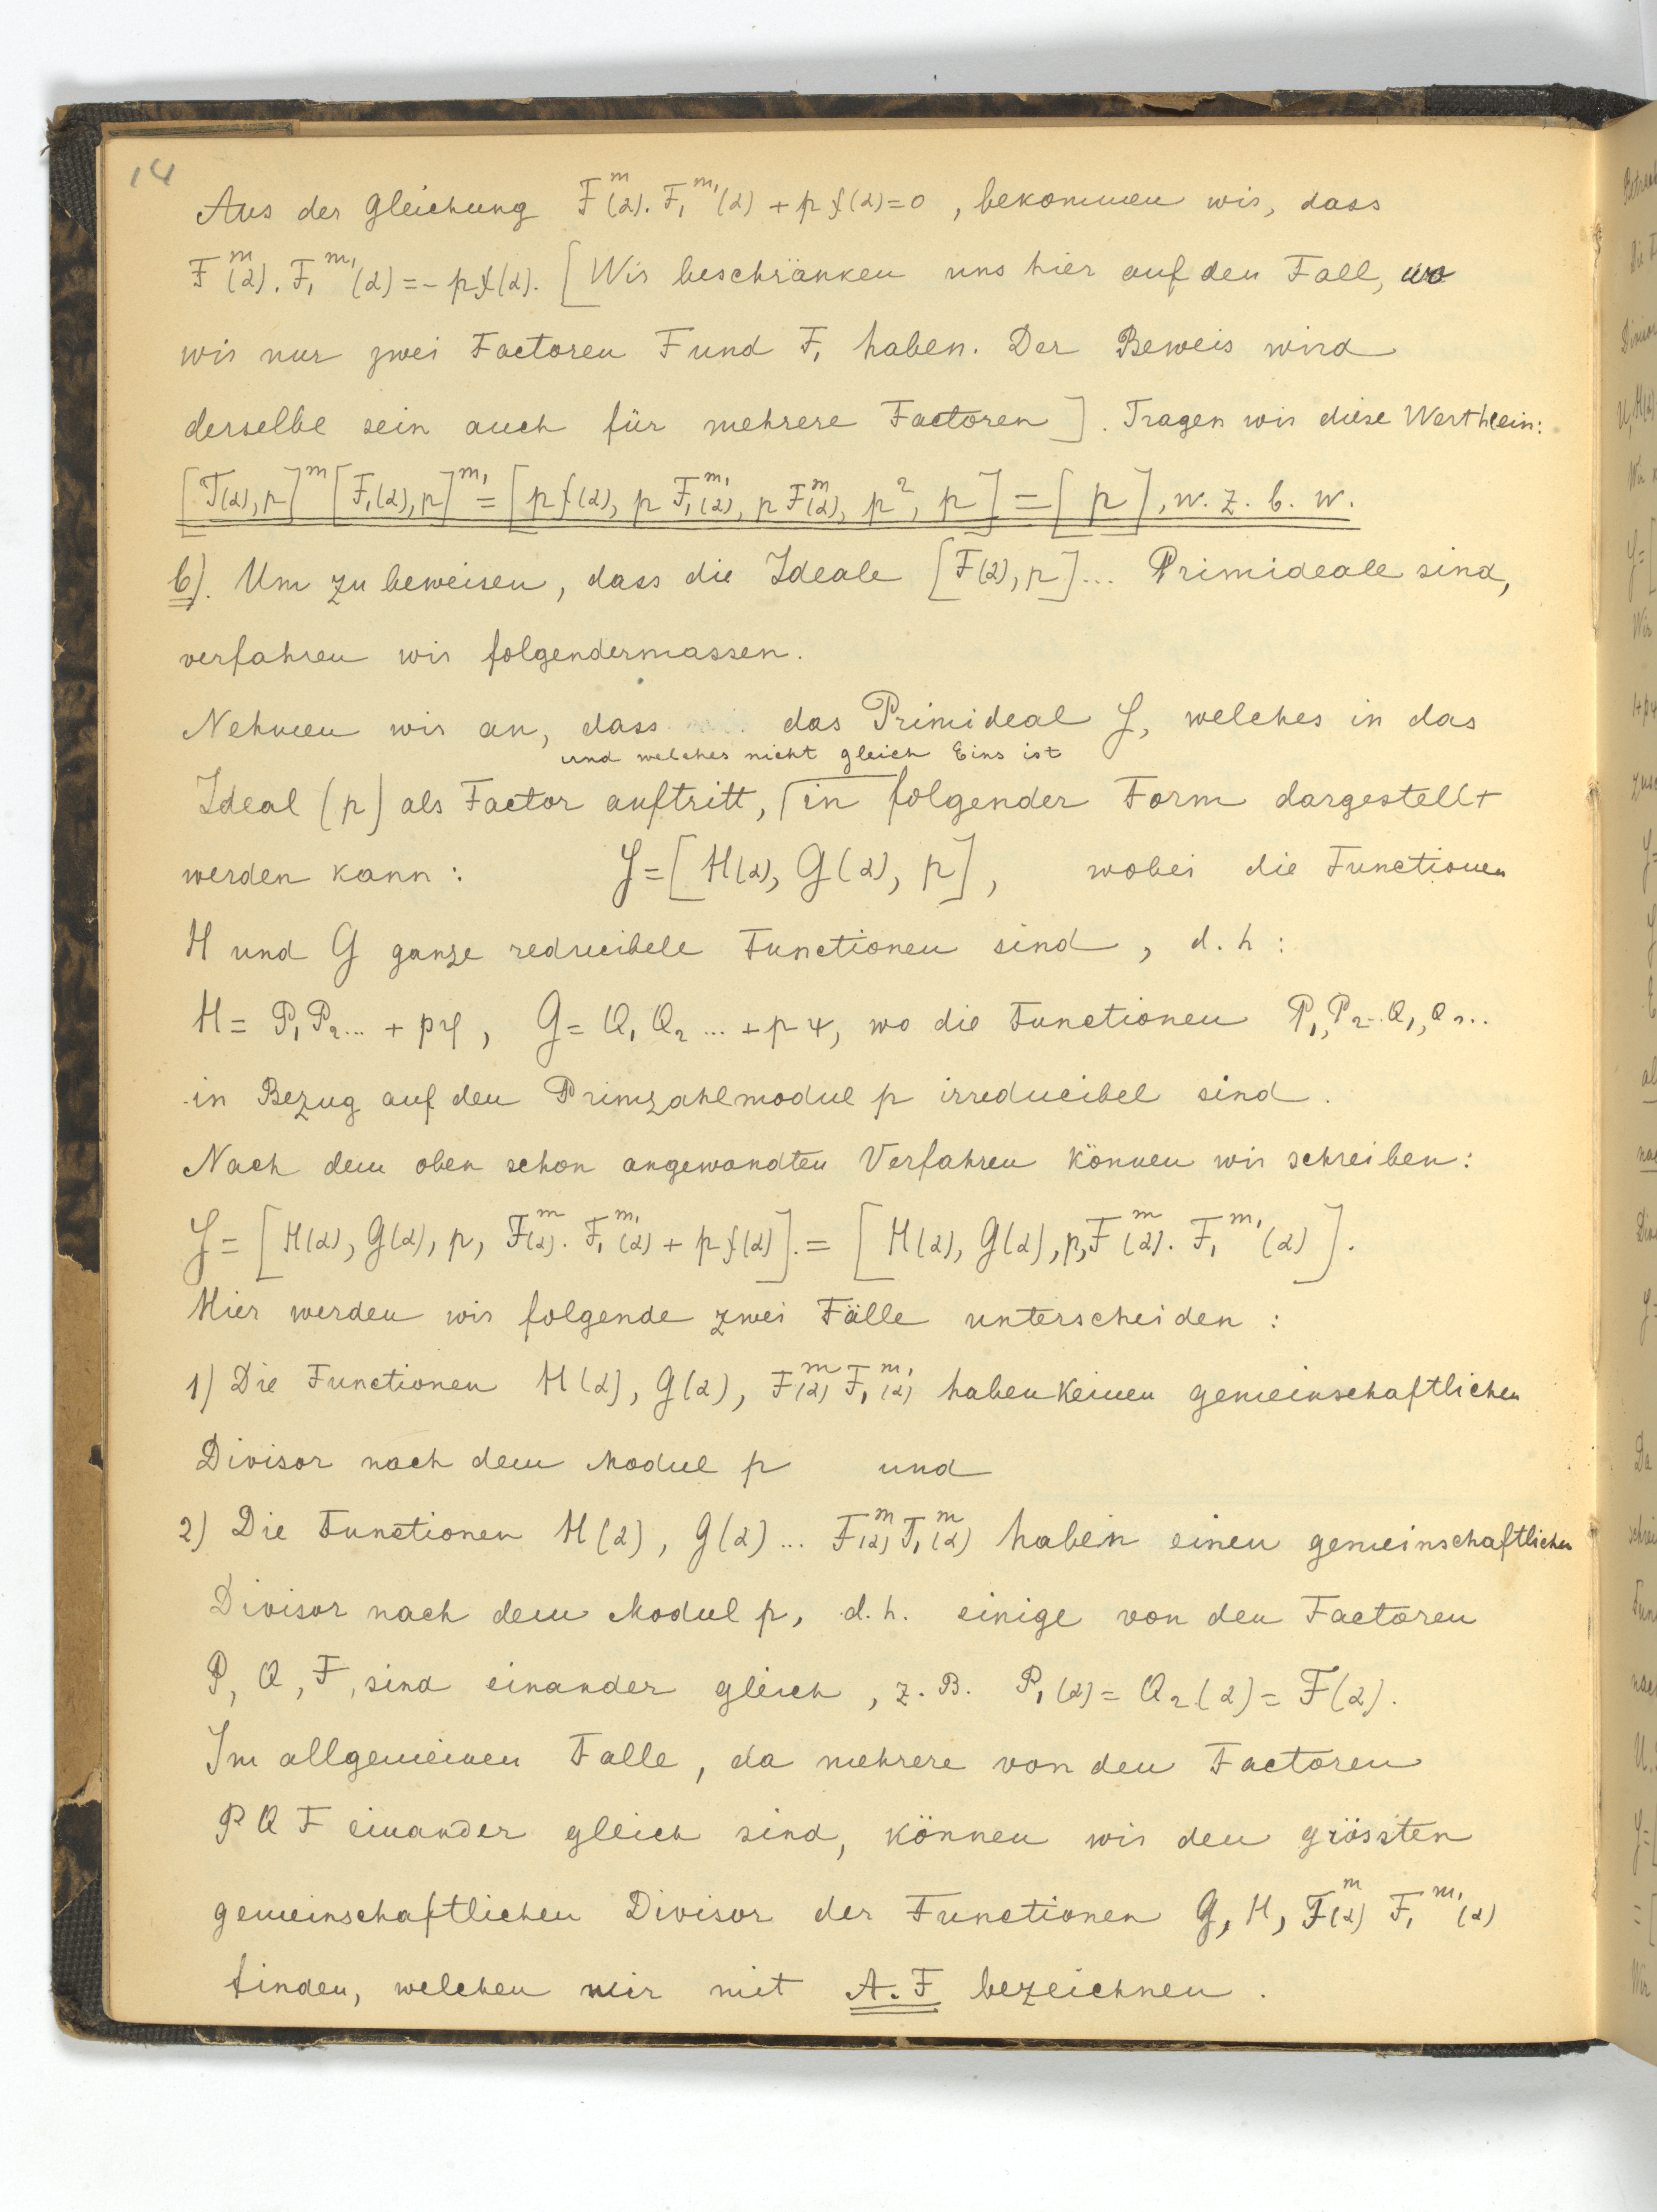 14
Aus der Gleichung F^m(α). F₁^m₁(α) + p f(α) = 0, bekommen wir, dass
F^m(α). F₁^m₁(α) = - p f(α). [Wir beschränken uns hier auf den Fall, wo
wir nur zwei Factoren F und F₁ haben. Der Beweis wird
derselbe sein auch für mehrere Factoren]. Tragen wir diese Werth ein:
[F(α), p]^m [F₁(α), p]^m₁ = [p f(α), p F₁^m₁(α), p F^m(α), p², p] = [p], w. z. b. w.
b). Um zu beweisen, dass die Ideale [F(α), p]... Primideale sind,
verfahren wir folgendermassen.
Nehmen wir an, dass das Primideal J, welches in das
und welches nicht gleich Eins ist
Ideal (p) als Factor auftritt, in folgender Form dargestellt
werden kann: J = [H(α), G(α), p], wobei die Functionen
H und G ganze reducibele Functionen sind, d. h:
H = P₁ P₂ ... + p φ, G = Q₁ Q₂ ... + p ψ, wo die Functionen P₁, P₂.. Q₁, Q₂..
in Bezug auf den Primzahlmodul p irreducibel sind.
Nach dem oben schon angewandten Verfahren können wir schreiben:
J = [H(α), G(α), p, F^m(α). F₁^m₁(α) + p f(α)]. = [H(α), G(α), p, F^m(α). F₁^m₁(α)].
Hier werden wir folgende zwei Fälle unterscheiden:
1) Die Functionen H(α), G(α), F^m(α) F₁^m₁(α) haben keinen gemeinschaftlichen
Divisor nach dem Modul p und
2) Die Functionen H(α), G(α) ... F^m(α) F₁^m(α) haben einen gemeinschaftlichen
Divisor nach dem Modul p, d. h. einige von den Factoren
P, Q, F, sind einander gleich, z. B. P₁(α) = Q₂(α) = F(α).
Im allgemeinen Falle, da mehrere von den Factoren
P Q F einander gleich sind, können wir den grössten
gemeinschaftlichen Divisor der Functionen G, H, F^m(α) F₁^m₁(α)
finden, welchen wir mit A. F bezeichnen.